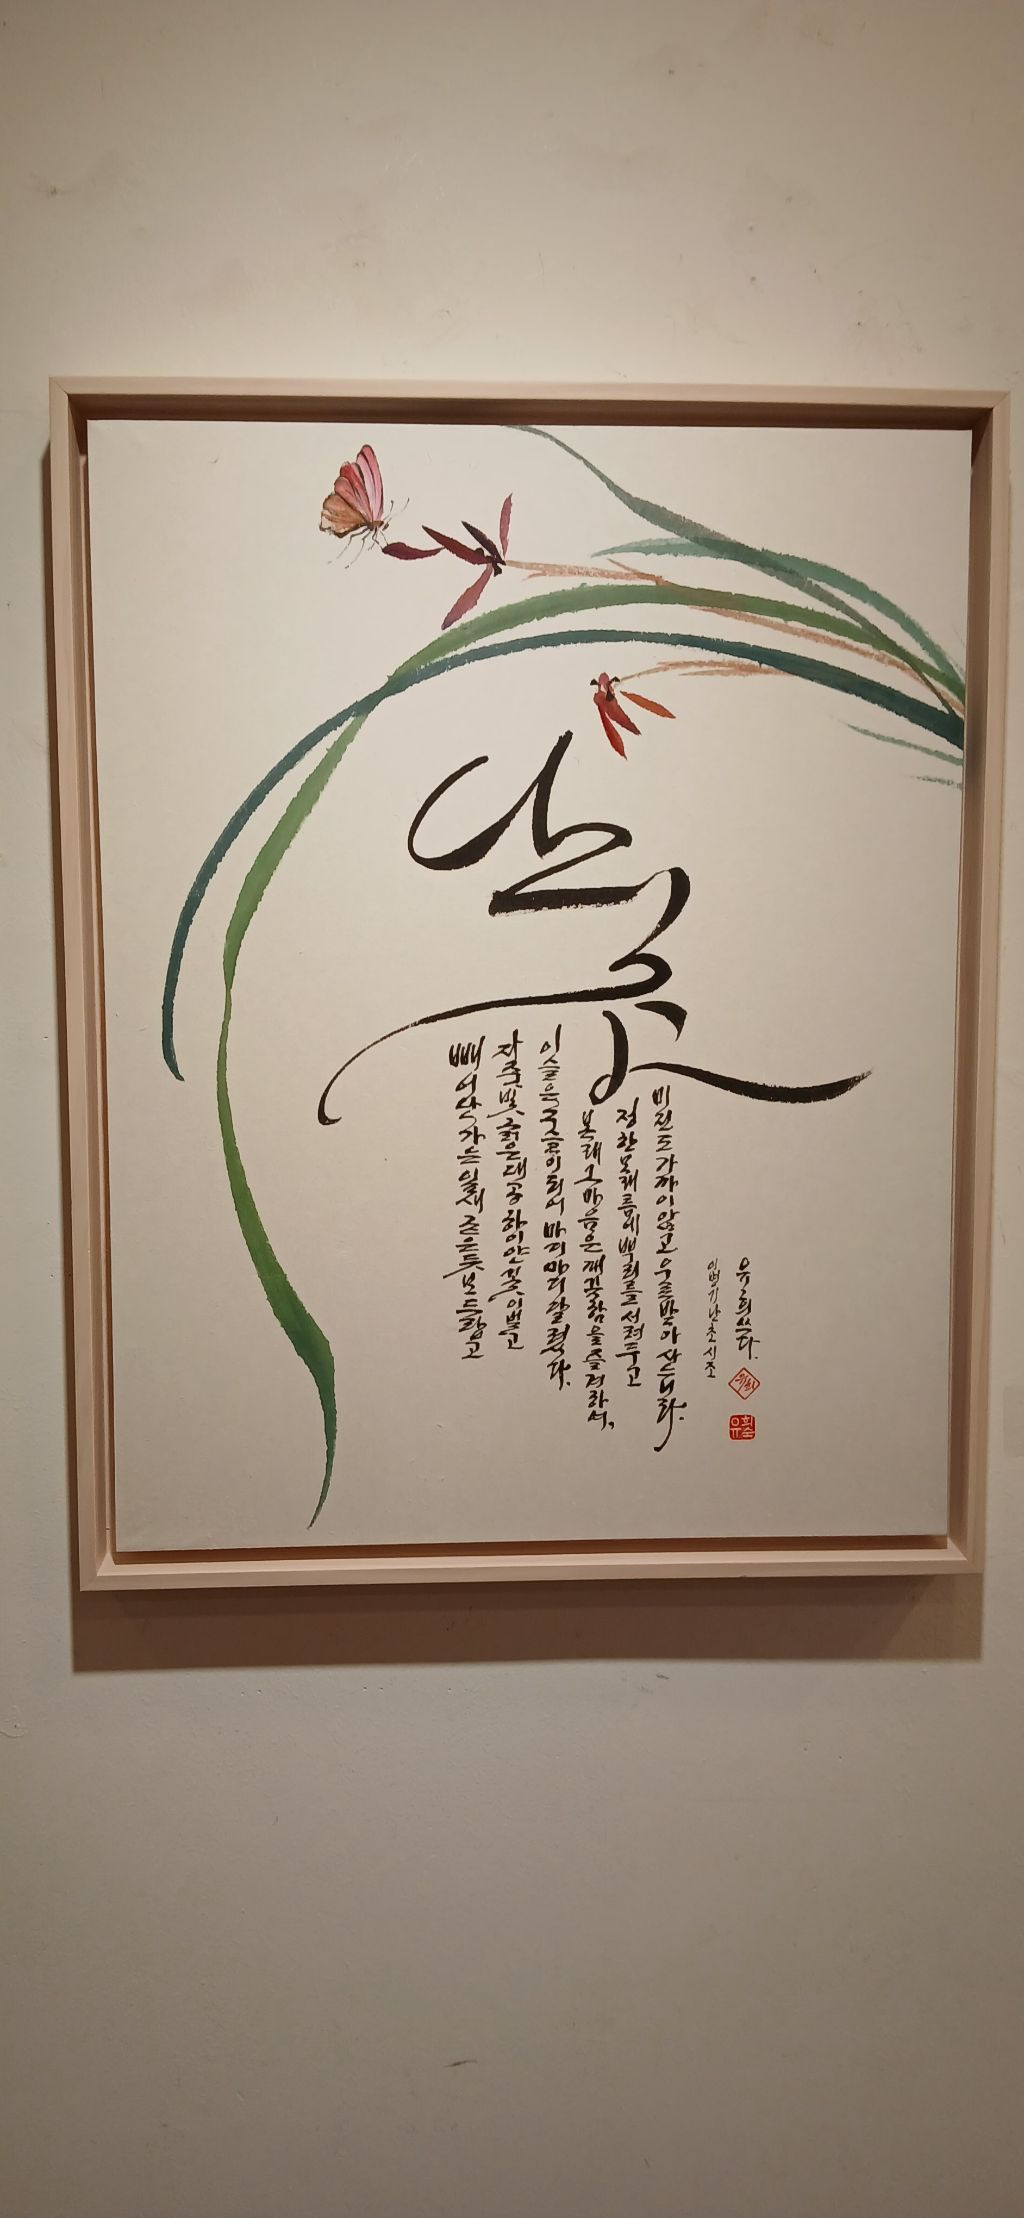 난초
빼어난 가는 잎새 굳은 듯 보드랍고
자줏빛 굵은 대공 하이얀 꽃이 벌고
이슬은 구슬이 되어 마디마디 달렸다.
본래 그 마음은 깨끗함을 즐겨하여,
정한 모래틈에 뿌리를 서려두고
미진도 가까이 않고 우로 받아 사느니라.
이병기 난초 시조
유희 쓰다.
유희